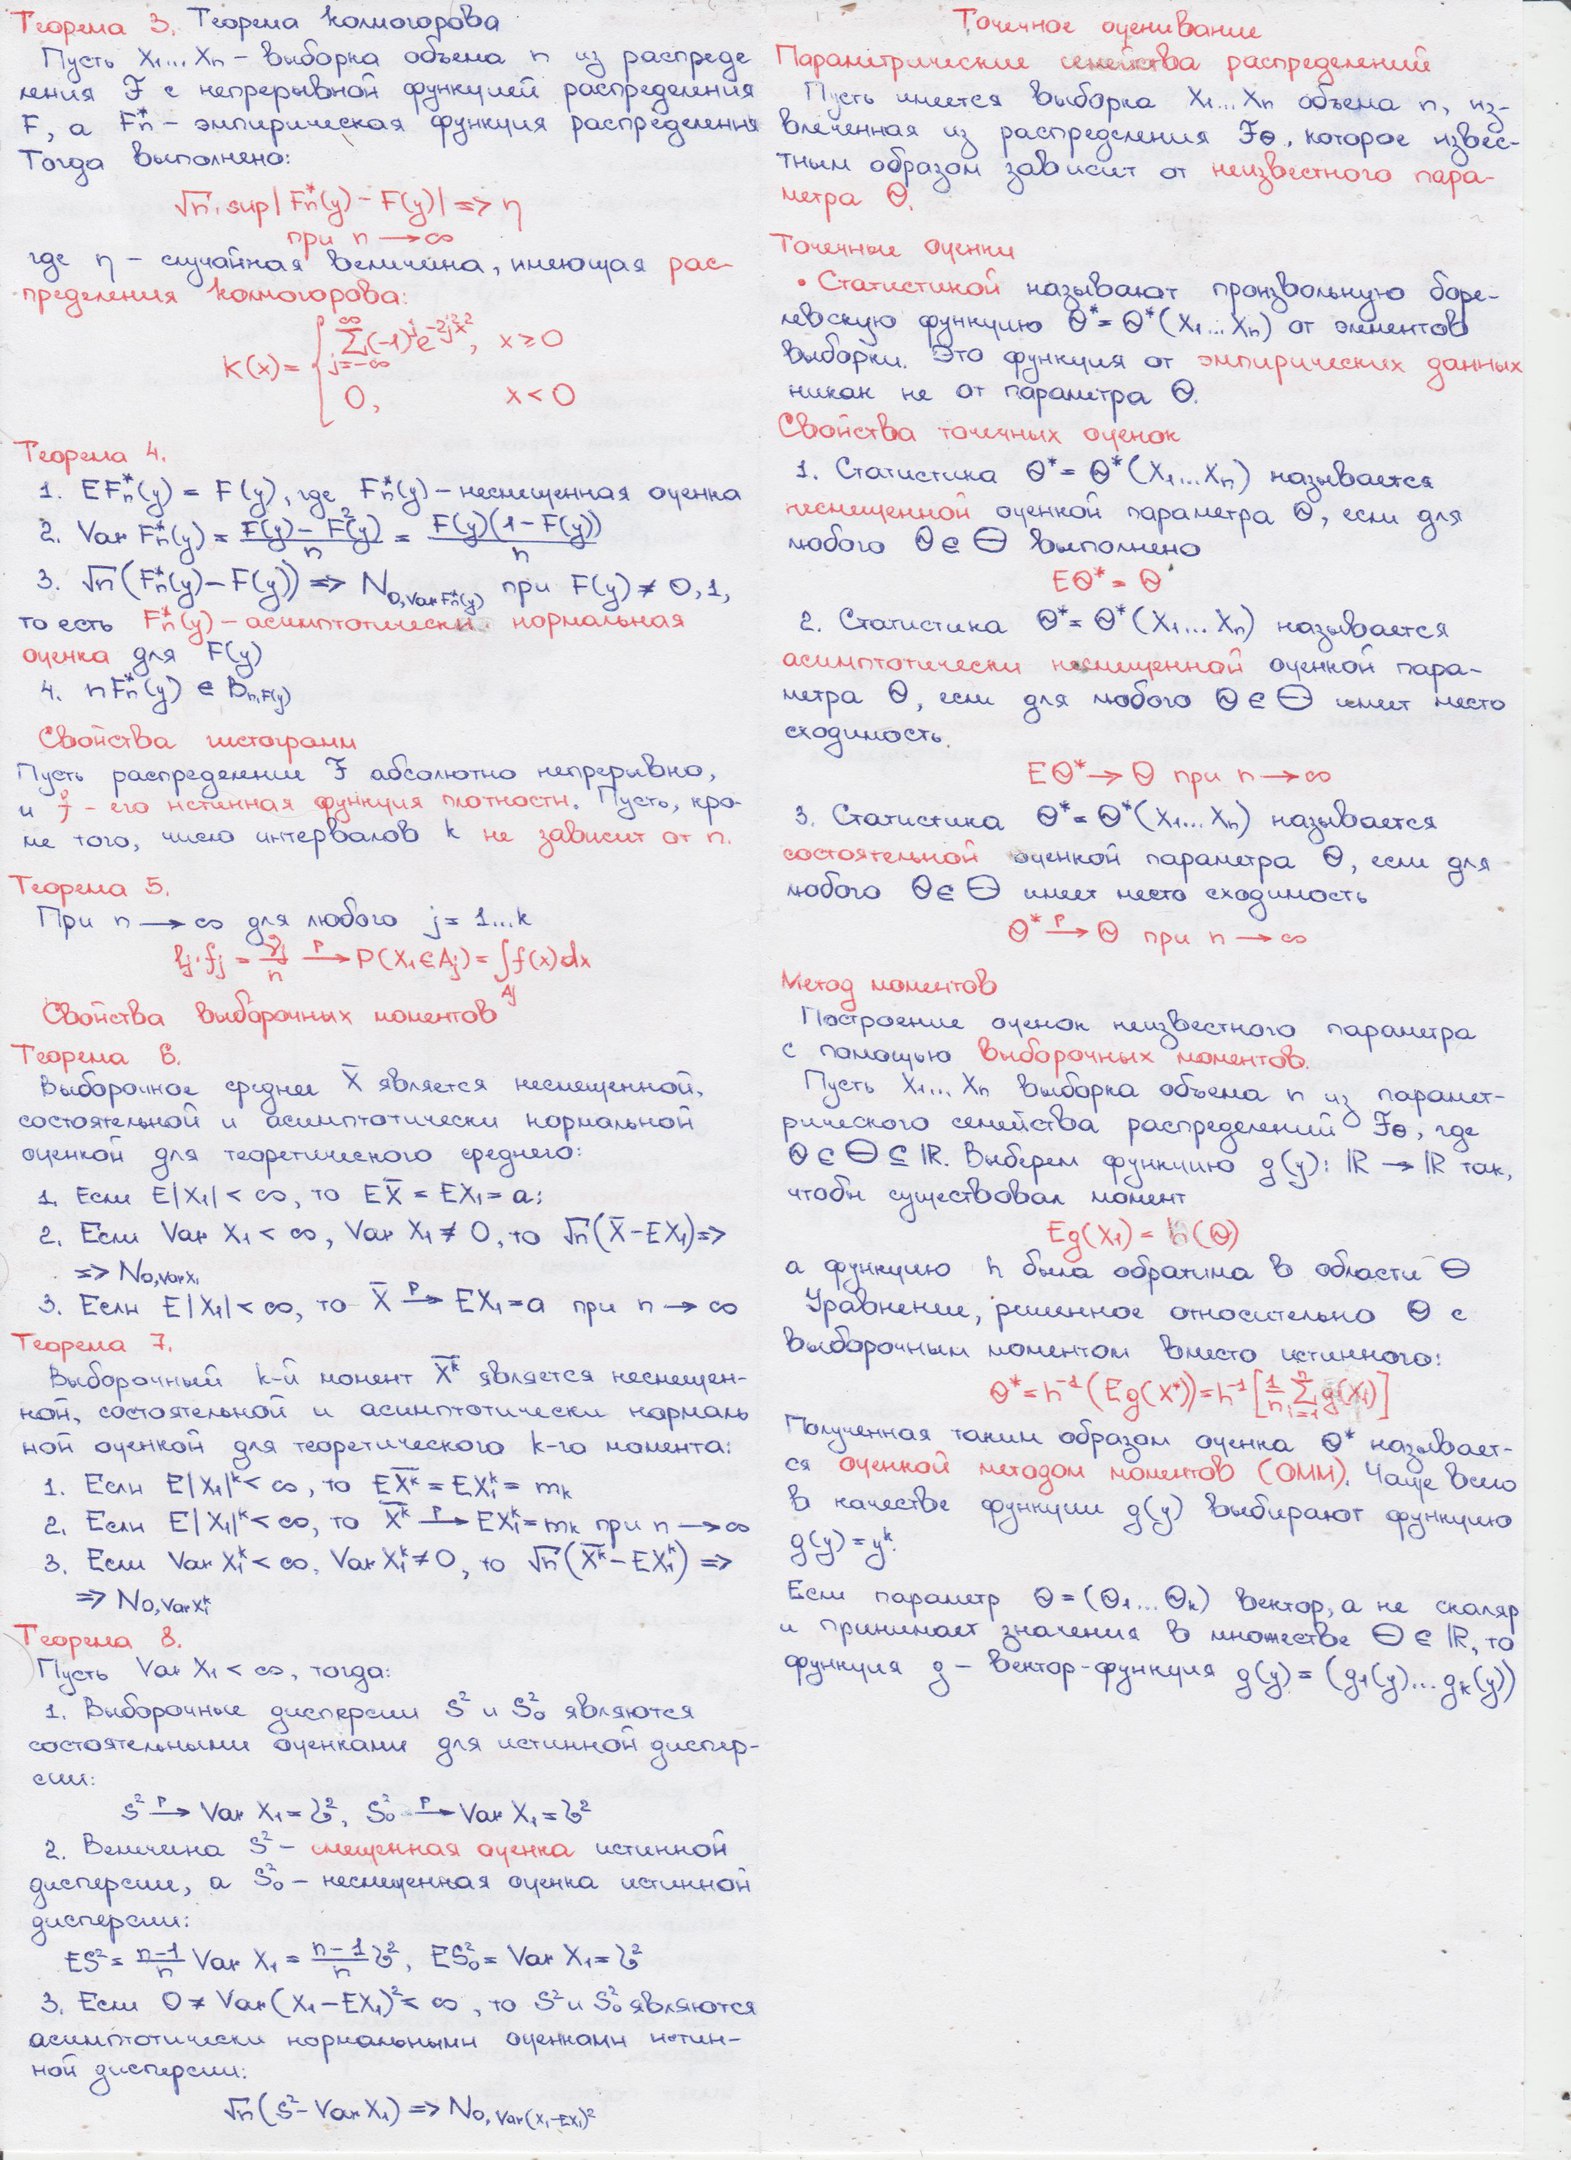 Теорема 3. Теорема Колмогорова
Пусть X₁...Xₙ – выборка объема n из распреде
ления ℱ с непрерывной функцией распределения
F, а Fₙ* – эмпирическая функция распределения
Тогда выполнено:
√n · sup|Fₙ*(y) – F(y)| => η
при n → ∞
где η – случайная величина, имеющая рас-
пределения Колмогорова:
K(x) = { ∑_{j=-∞}^{∞} (-1)^j e^{-2j²x²}, x ≥ 0
0, x < 0
Теорема 4.
1. EFₙ*(y) = F(y), где Fₙ*(y) – несмещенная оценка
2. Var Fₙ*(y) = (F(y) – F²(y))/n = (F(y)(1 – F(y)))/n
3. √n(Fₙ*(y) – F(y)) => N_{0,Var Fₙ*(y)} при F(y) ≠ 0,1,
то есть Fₙ*(y) – асимптотически нормальная
оценка для F(y)
4. nFₙ*(y) ∈ B_{n,F(y)}
Свойства гистограмм
Пусть распределение ℱ абсолютно непрерывно,
и f – его истинная функция плотности. Пусть, кро-
ме того, число интервалов k не зависит от n.
Теорема 5.
При n → ∞ для любого j = 1...k
lⱼ · fⱼ = νⱼ/n →ᴾ P(X₁ ∈ Aⱼ) = ∫_{Aj} f(x)dx
Свойства выборочных моментов
Теорема 6.
Выборочное среднее X̄ является несмещенной,
состоятельной и асимптотически нормальной
оценкой для теоретического среднего:
1. Если E|X₁| < ∞, то EX̄ = EX₁ = a;
2. Если Var X₁ < ∞, Var X₁ ≠ 0, то √n(X̄ – EX₁) =>
=> N_{0,Var X₁}
3. Если E|X₁| < ∞, то X̄ →ᴾ EX₁ = a при n → ∞
Теорема 7.
Выборочный k-й момент \overline{X^k} является несмещен-
ной, состоятельной и асимптотически нормаль
ной оценкой для теоретического k-го момента:
1. Если E|X₁|^k < ∞, то E\overline{X^k} = EX₁^k = m_k
2. Если E|X₁|^k < ∞, то \overline{X^k} →ᴾ EX₁^k = m_k при n → ∞
3. Если Var X₁^k < ∞, Var X₁^k ≠ 0, то √n(\overline{X^k} – EX₁^k) =>
=> N_{0,Var X₁^k}
Теорема 8.
Пусть Var X₁ < ∞, тогда:
1. Выборочные дисперсии S² и S₀² являются
состоятельными оценками для истинной диспер-
сии:
S² →ᴾ Var X₁ = σ², S₀² →ᴾ Var X₁ = σ²
2. Величина S² – смещенная оценка истинной
дисперсии, а S₀² – несмещенная оценка истинной
дисперсии:
ES² = (n–1)/n Var X₁ = (n–1)/n σ², ES₀² = Var X₁ = σ²
3. Если 0 ≠ Var(X₁ – EX₁)² < ∞, то S² и S₀² являются
асимптотически нормальными оценками истин-
ной дисперсии:
√n(S² – Var X₁) => N_{0,Var(X₁–EX₁)²}
Точечное оценивание
Параметрические семейства распределений
Пусть имеется выборка X₁...Xₙ объема n, из-
влеченная из распределения ℱ_θ, которое извес-
тным образом зависит от неизвестного пара-
метра θ.
Точечные оценки
• Статистикой называют произвольную боре-
левскую функцию θ* = θ*(X₁...Xₙ) от элементов
выборки. Это функция от эмпирических данных
никак не от параметра θ.
Свойства точечных оценок
1. Статистика θ* = θ*(X₁...Xₙ) называется
несмещенной оценкой параметра θ, если для
любого θ ∈ Θ выполнено
Eθ* = θ
2. Статистика θ* = θ*(X₁...Xₙ) называется
асимптотически несмещенной оценкой пара-
метра θ, если для любого θ ∈ Θ имеет место
сходимость.
Eθ* → θ при n → ∞
3. Статистика θ* = θ*(X₁...Xₙ) называется
состоятельной оценкой параметра θ, если для
любого θ ∈ Θ имеет место сходимость
θ* →ᴾ θ при n → ∞
Метод моментов
Построение оценок неизвестного параметра
с помощью выборочных моментов.
Пусть X₁...Xₙ выборка объема n из парамет-
рического семейства распределений ℱ_θ, где
θ ∈ Θ ⊆ ℝ. Выберем функцию g(y): ℝ → ℝ так,
чтобы существовал момент
Eg(X₁) = h(θ)
а функцию h была обратима в области Θ
Уравнение, решенное относительно θ с
выборочным моментом вместо истинного:
θ* = h⁻¹(Eg(X*)) = h⁻¹[1/n ∑_{i=1}^{n} g(Xᵢ)]
Полученная таким образом оценка θ* называет-
ся оценкой методом моментов (ОММ). Чаще всего
в качестве функции g(y) выбирают функцию
g(y) = y^k.
Если параметр θ = (θ₁...θ_k) вектор, а не скаляр
и принимает значения в множестве Θ ∈ ℝ, то
функция g – вектор-функция g(y) = (g₁(y)...g_k(y))